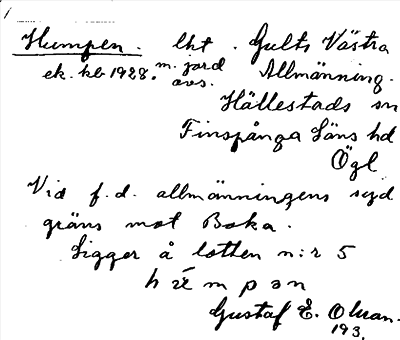 Humpen. lht. Gults Västra
ek. kb 1928. m. jord avs. Allmänning.
Hällestads sn
Finspånga Läns hd
Ögl
Vid f.d. allmänningens syd
gräns mot Boka.
Ligger å lotten n:r 5
Gustaf E. Olsson.
193.